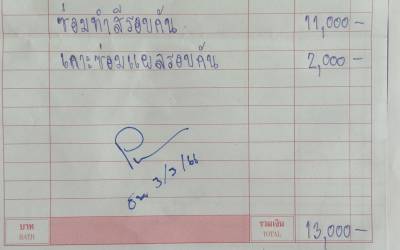 ซ่อมทำสีรอบคัน 11,000-
เคาะซ่อมแผลรอบคัน 2,000-
3/3/66
บาท BAHT รวมเงิน TOTAL 13,000-